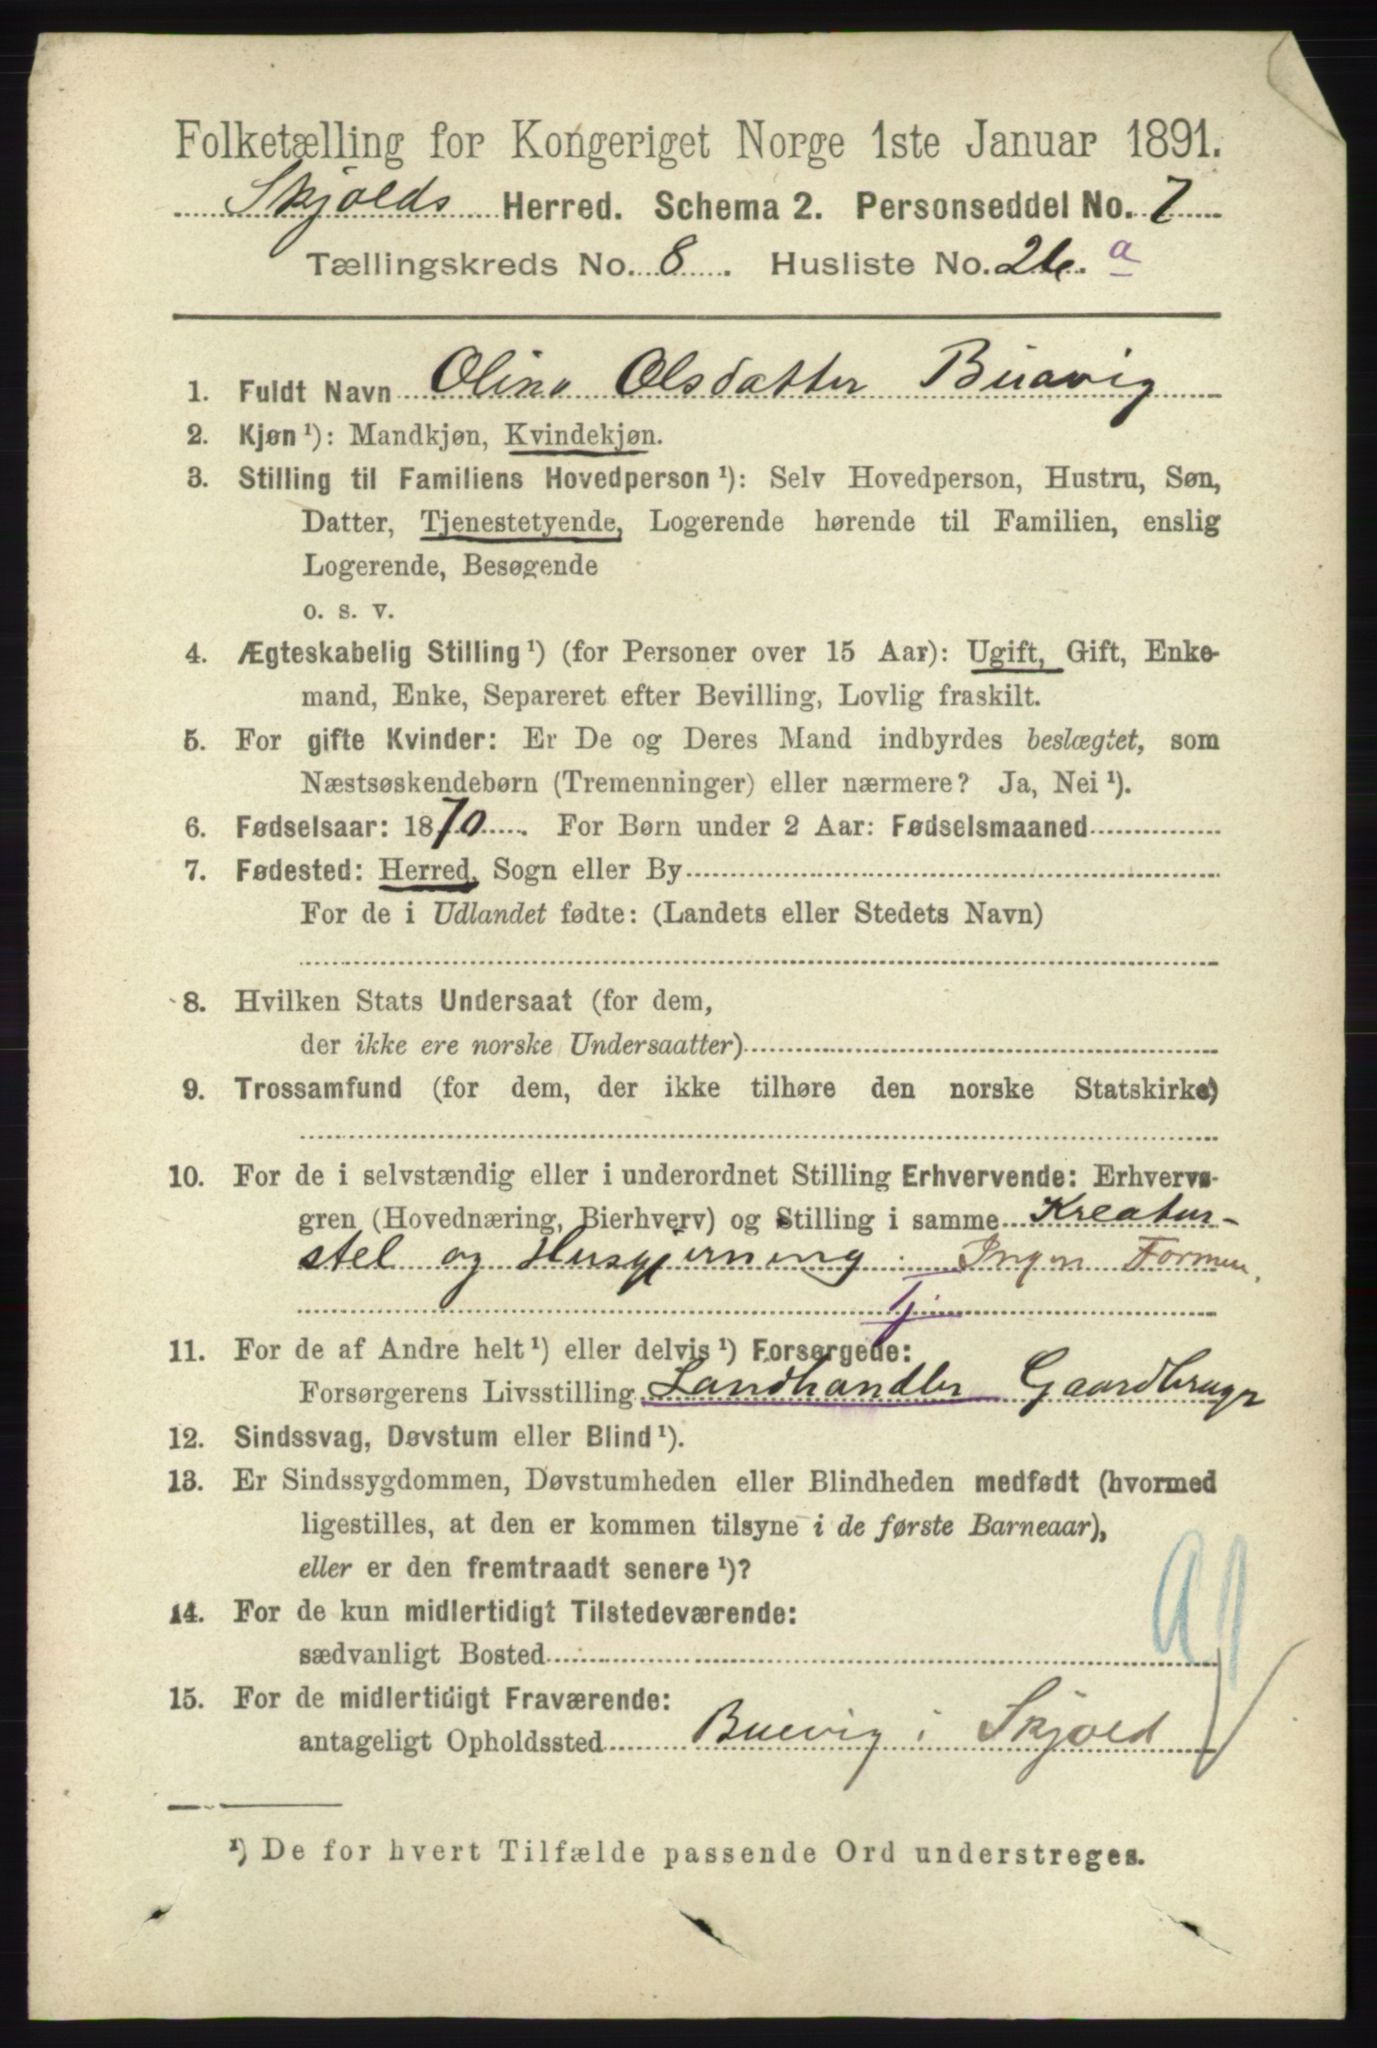 Folketælling for Kongeriget Norge 1ste Januar 1891.
Skjolds Herred. Schema 2. Personseddel No. 7
Tællingskreds No. 8. Husliste No. 26. a
1. Fuldt Navn Olina Olsdatter Buavig
2. Kjøn ¹): Mandkjøn, Kvindekjøn.
3. Stilling til Familiens Hovedperson ¹): Selv Hovedperson, Hustru, Søn,
Datter, Tjenestetyende, Logerende hørende til Familien, enslig
Logerende, Besøgende
o. s. v.
4. Ægteskabelig Stilling ¹) (for Personer over 15 Aar): Ugift, Gift, Enke-
mand, Enke, Separeret efter Bevilling, Lovlig fraskilt.
5. For gifte Kvinder: Er De og Deres Mand indbyrdes beslægtet, som
Næstsøskendebørn (Tremenninger) eller nærmere? Ja, Nei ¹).
6. Fødselsaar: 1870. For Børn under 2 Aar: Fødselsmaaned
7. Fødested: Herred, Sogn eller By
For de i Udlandet fødte: (Landets eller Stedets Navn)
8. Hvilken Stats Undersaat (for dem,
der ikke ere norske Undersaatter)
9. Trossamfund (for dem, der ikke tilhøre den norske Statskirke)
10. For de i selvstændig eller i underordnet Stilling Erhvervende: Erhvervs-
gren (Hovednæring, Bierhverv) og Stilling i samme Kreatur-
stel og Husgjerning. Ingen Formue.
Tj.
11. For de af Andre helt ¹) eller delvis ¹) Forsørgede:
Forsørgerens Livsstilling Landhandler Gaardbruger
12. Sindssvag, Døvstum eller Blind ¹).
13. Er Sindssygdommen, Døvstumheden eller Blindheden medfødt (hvormed
ligestilles, at den er kommen tilsyne i de første Barneaar),
eller er den fremtraadt senere ¹)?
14. For de kun midlertidigt Tilstedeværende:
sædvanligt Bosted
15. For de midlertidigt Fraværende:
antageligt Opholdssted Buevig i Skjold
¹) De for hvert Tilfælde passende Ord understreges.